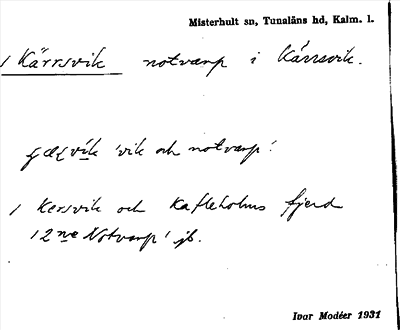 Misterhult sn, Tunaläns hd, Kalm. l.
Kärrsvik notvarp i Kärrsvik.
'vik och notvarp'.
Kersvik och Kafleholms fjerd
12 ne Notvarp' jb.
Ivar Modéer 1931